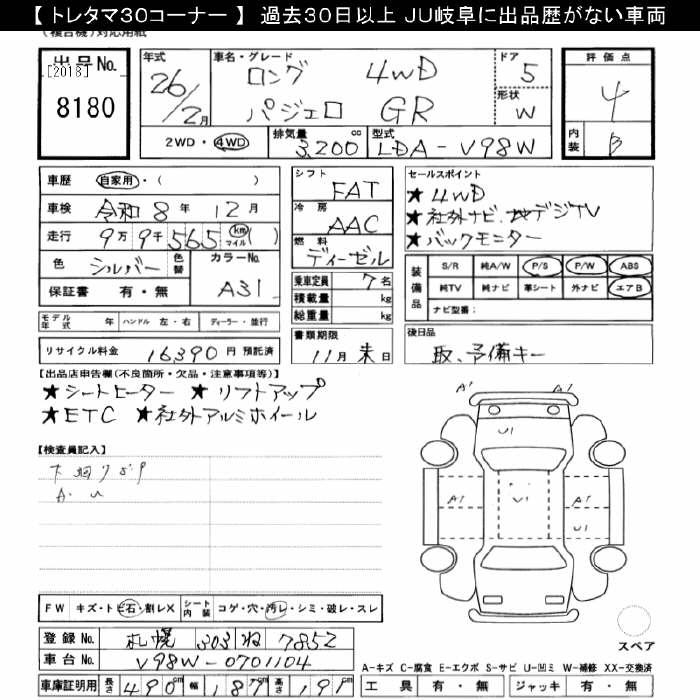 【 トレタマ30コーナー 】 過去30日以上 JU岐阜に出品歴がない車両
(複合機)対応用紙
出品No. [2018] 8180
年式 26/2月
車名・グレード ロング 4WD
パジェロ GR
ドア 5
形状 W
評価点 4
内装 B
2WD・4WD 排気量 3,200 cc 型式 LDA-V98W
車歴 自家用・( )
車検 令和8年12月
走行 9万9千565 km マイル ( )
色 シルバー 色替 カラーNo. A31
保証書 有・無
シフト FAT
冷房 AAC
燃料 ディーゼル
乗車定員 7名
積載量 kg
総重量 kg
セールスポイント
★4WD
★社外ナビ、地デジTV
★バックモニター
装備品 S/R 純A/W P/S P/W ABS
純TV 純ナビ 革シート 外ナビ エアB
ナビ型番:
モデル年式 年 ハンドル 左・右 ディーラー・並行
リサイクル料金 16,390円 預託済
書類期限 11月末日
後日品 取、予備キー
【出品店申告欄(不良箇所・欠品・注意事項等)】
★シートヒーター ★リフトアップ
★ETC ★社外アルミホイール
【検査員記入】
下廻りサビ
A・U
A1 A1
U1
A1 U1 A1
U1
FW キズ・トビ石・割レX シート内装 コゲ・穴・汚レ・シミ・破レ・スレ
登録No. 札幌 303 ね 7852
車台No. V98W-0701104
車庫証明用 長さ 490cm 幅 187cm 高さ 191cm
スペア
A-キズ C-腐食 E-エクボ S-サビ U-凹ミ W-補修 XX-交換済
工具 有・無 ジャッキ 有・無